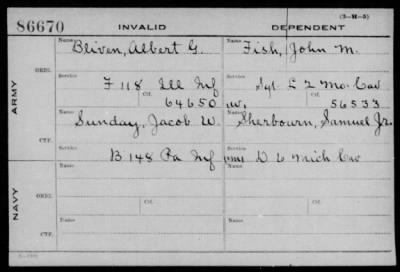 (3-H-5)
86670 INVALID DEPENDENT
Name Bliven, Albert G. Name Fish, John M.
ORIG.
Service F 118 Ill Inf Service Sgt L 2 Mo. Cav
Ctf. 64650 Ctf. 56533
ARMY
Name Sunday, Jacob W. Name Sherbourn, Samuel Jr.
CTF.
Service B 148 Pa Inf Service D 6 Mich Cav
Name Name
ORIG.
Service Service
Ctf. Ctf.
NAVY
Name Name
CTF.
Service Service